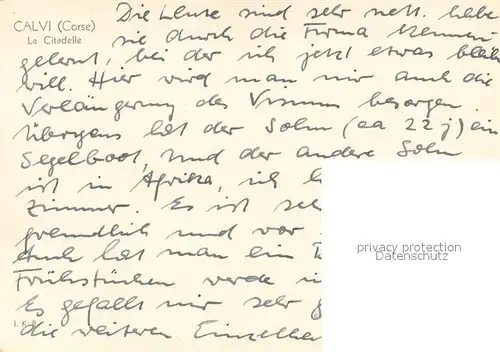 CALVI (Corse)
La Citadelle
Die Leute sind sehr nett. habe
sie durch die Firma kennen-
gelernt, bei der ich jetzt etwas bleiben
will. Hier wird man mir auch die
Verlängerung des Visums besorgen.
Übrigens hat der Sohn (ca 22 j) ein
Segelboot, und der andere Sohn
ist in Afrika, ich
Zimmer. Es ist
freundlich und vor
Auch hat man ein
Frühstücken werde
Es gefällt mir sehr
die weiteren Einzelhei
privacy protection
MARKE / ANSICHTSKARTEN.DE